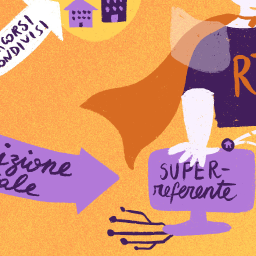 CORSI
ONDIVISI
R
izione
ale
SUPER-
referente